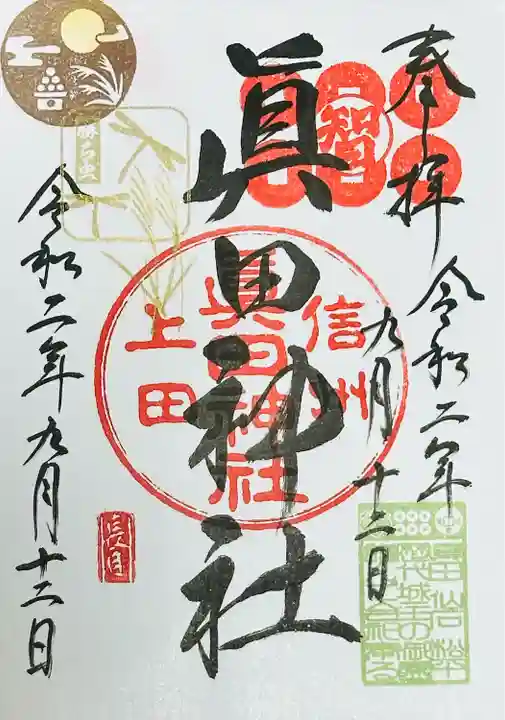 奉拝
令和二年
九月十二日
眞田神社
智
信州
眞田神社
上田
勝ち虫
長月
令和二年九月十二日